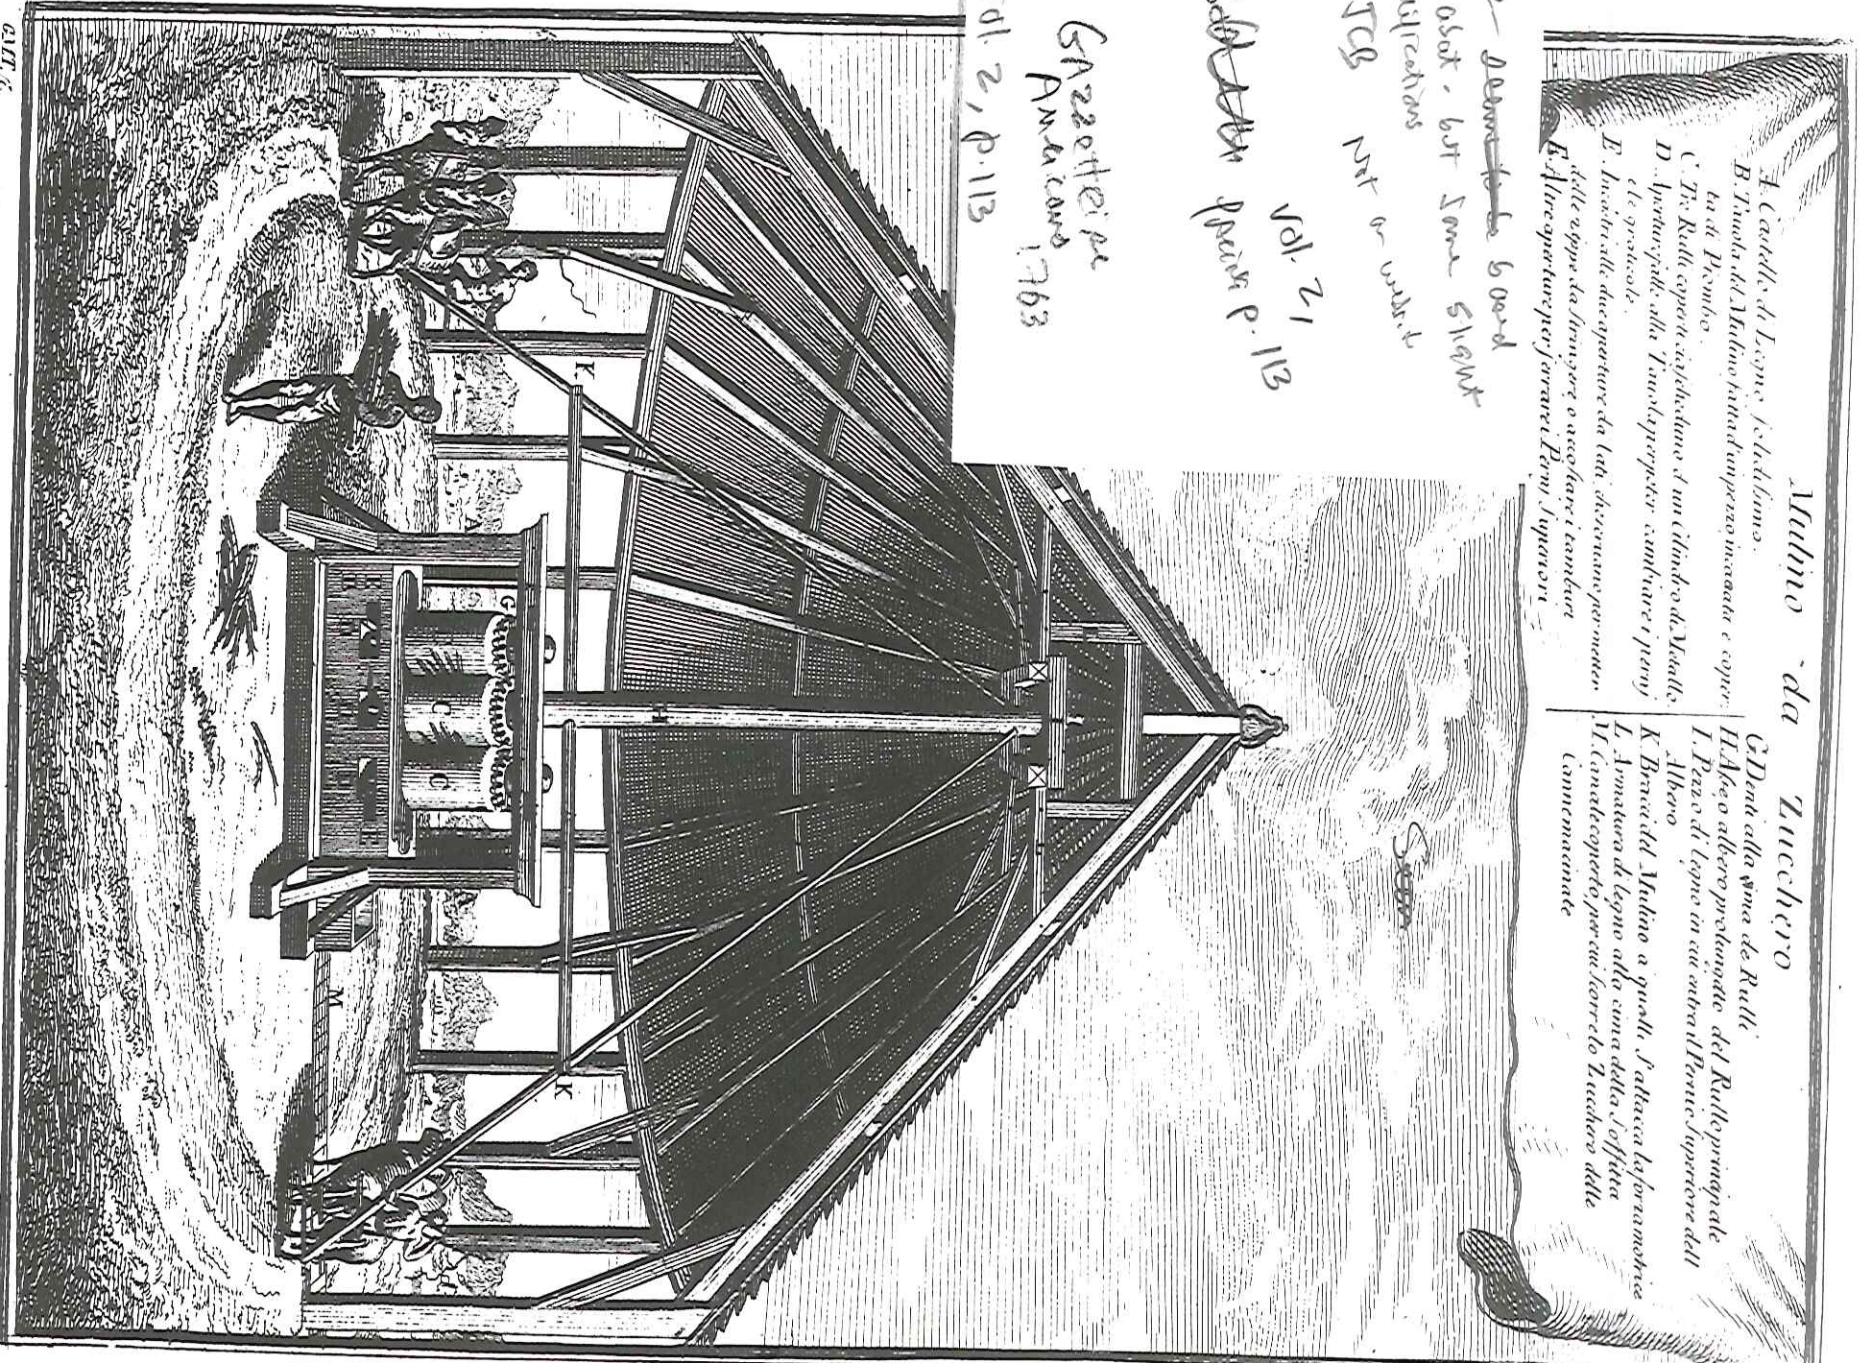 Mulino da Zucchero
A. Castello di Legno
B. Tavola del Mulino fatta d'un pezzo incavata e coper-
ta di Piombo.
C. Tre Rulli coperti ciascheduno d'un Cilindro di Metallo.
D. Aperture fatte alla Tavola per poter cambiare i perni
e le graticole.
E. Incastri alle due aperture da lati che servano per metter
delle zeppe da stringere o accostare i tamburi
F. Altre aperture per serrare i Perni Superiori
G. Denti alla cima de Rulli
H. Asse o albero prolungato del Rullo principale
I. Pezzo di Legno in cui entra il Pernio Superiore dell
Albero
K. Bracci del Mulino a quali s'attacca la forza motrice
L. Armatura di legno alla cima della Soffitta
M. Canale coperto per cui scorre lo Zucchero delle
Canne macinate
board
but some slight
JCB Not on website
Vol. 21
facing p. 113
Gazzettiere
Americano 1763
Vol. 2, p. 113
A
C
C
G
H
K
K
M